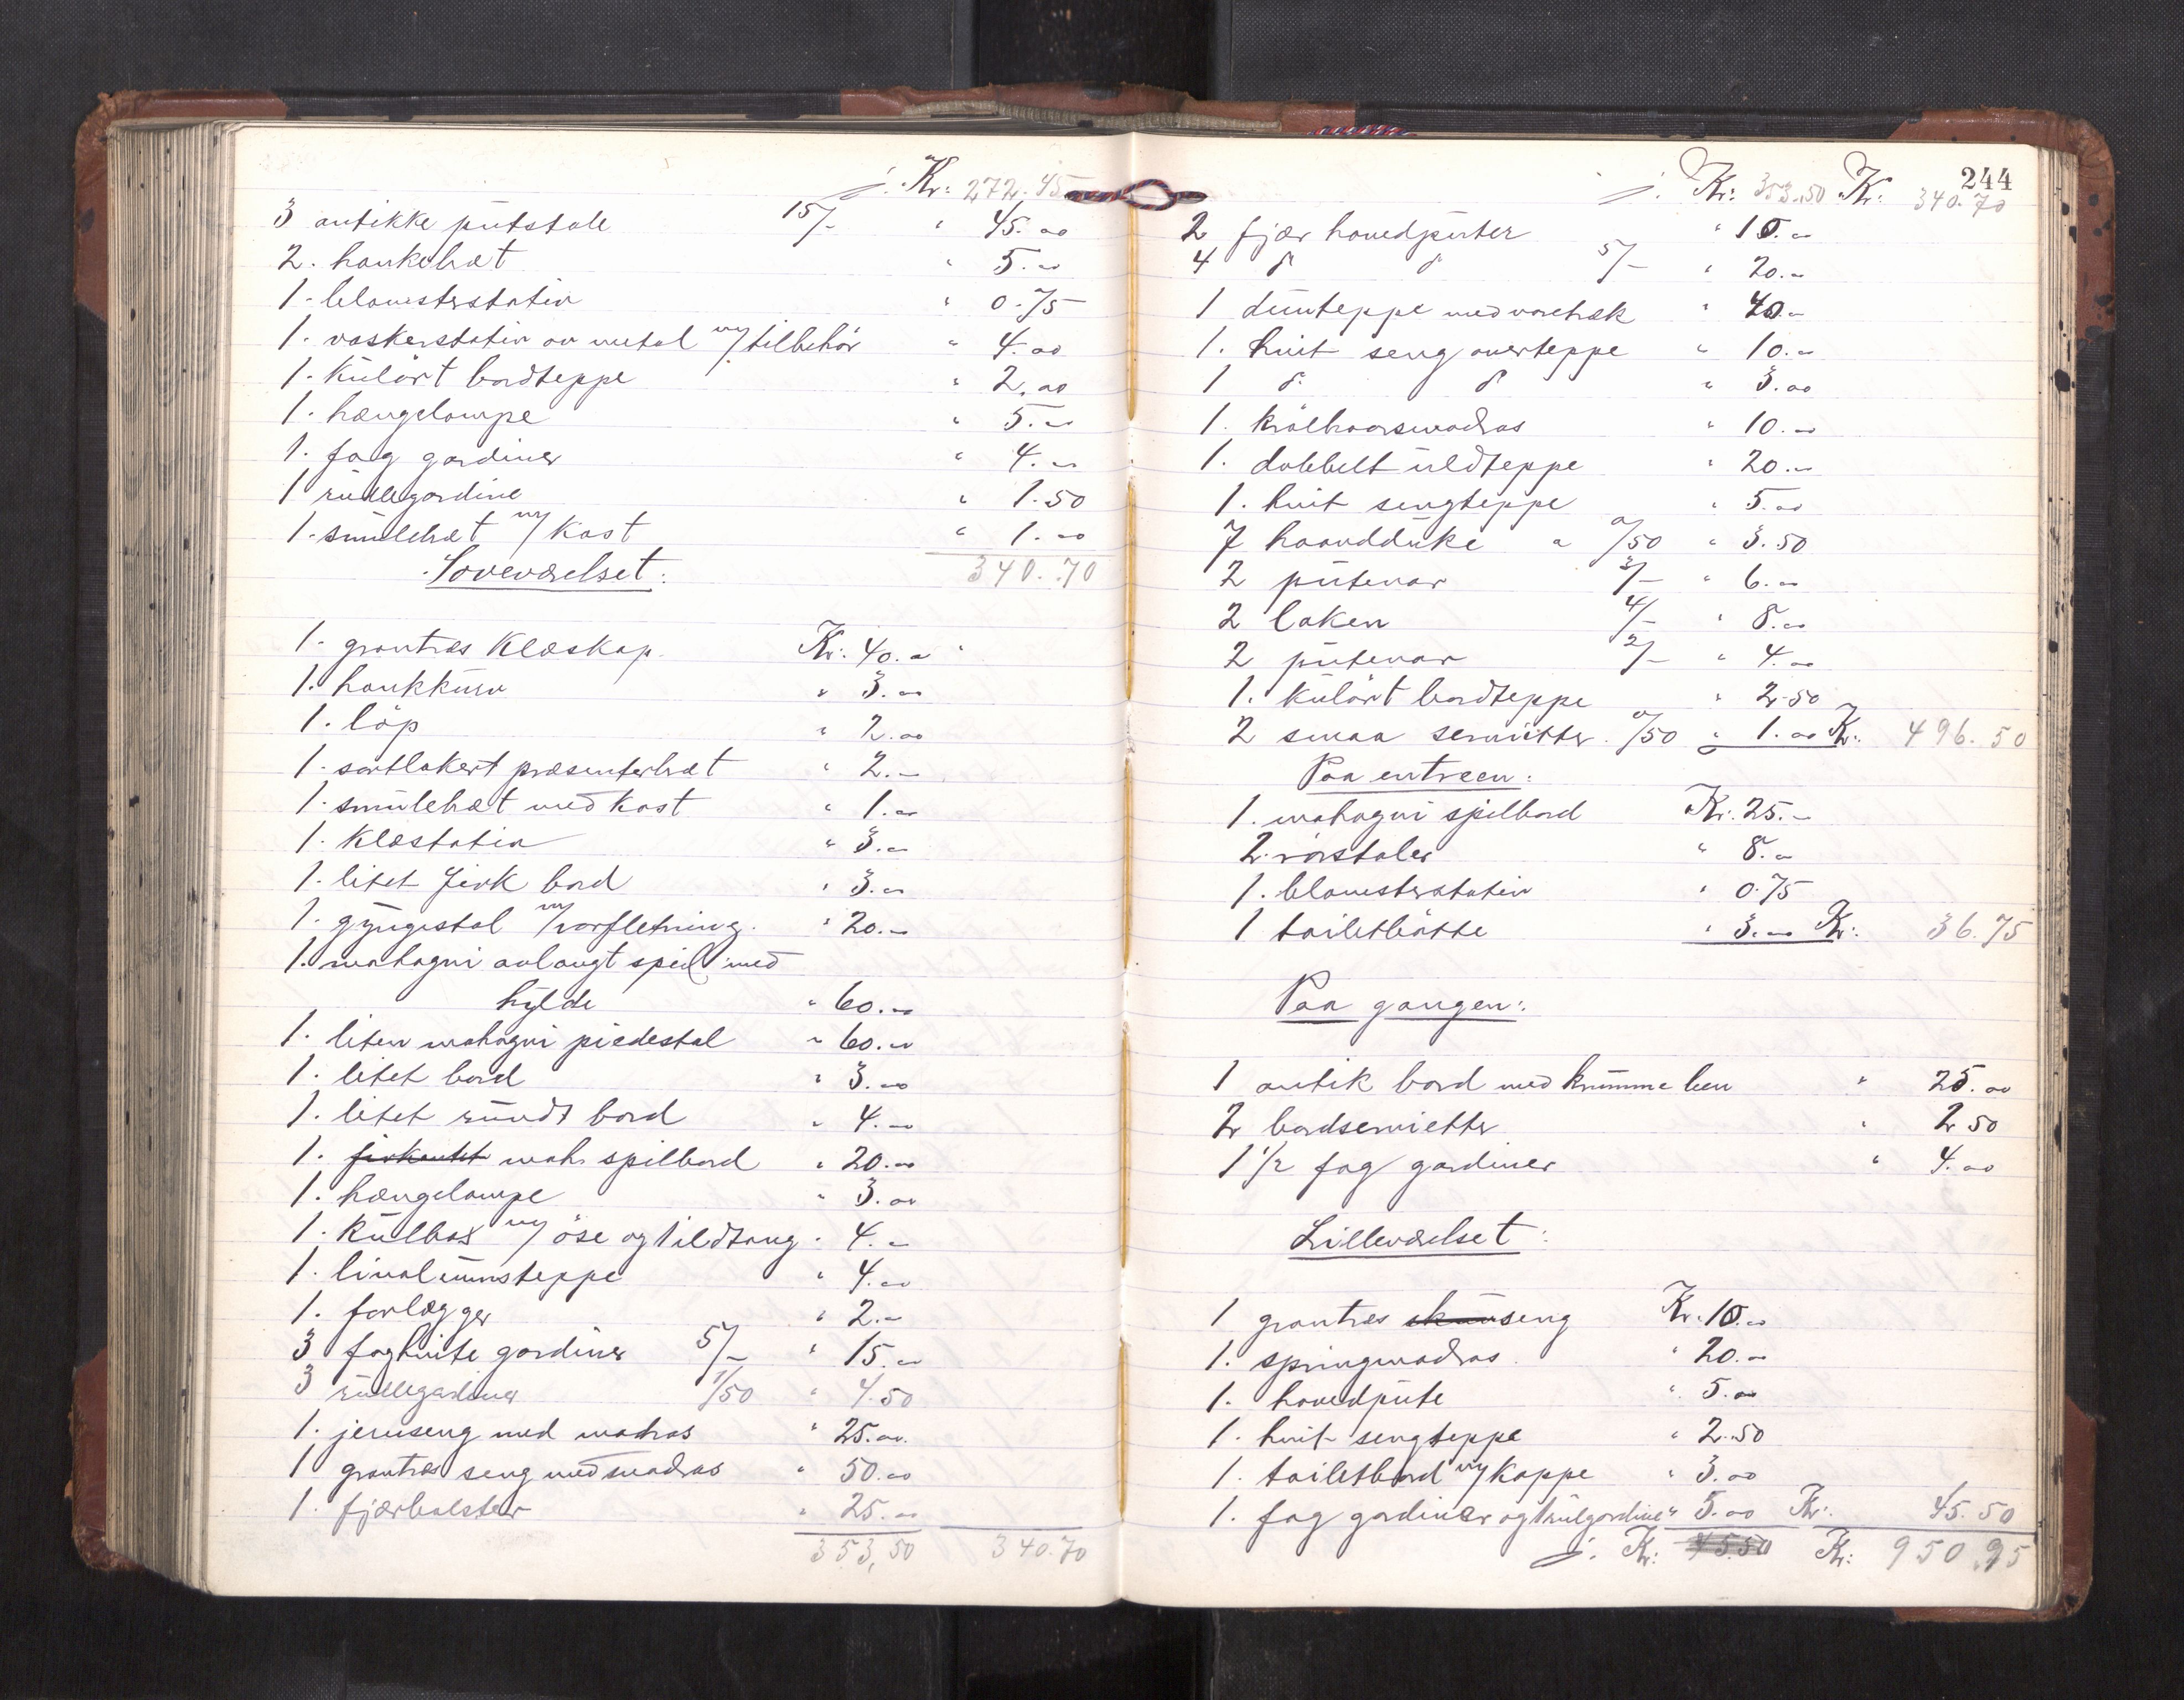 j. Kr: 272.45
3 antikke putstole 15/- " 45.00
2. hankebræt " 5.00
1. blomsterstativ " 0.75
1. vaskerstativ av metal m/tilbehör " 4.00
1. kulört bordteppe " 2.00
1. hængelampe " 5.00
1. fag gardiner " 4.00
1 rullegardine " 1.50
1. smulebræt m/kost " 1.00
340.70
Soveværelset:
1. grantræs klæskap Kr: 40.00
1. hankkurv " 3.00
1. löp " 2.00
1. sortlakert præsenterbræt " 2.00
1. smulebræt med kost " 1.00
1. klæstativ " 3.00
1. litet firk bord " 3.00
1. gyngestol m/rörfletning. " 20.00
1. mahogni avlangt speil med
hylde " 60.00
1. liten mahogni piedestal " 60.00
1. litet bord " 3.00
1. litet rundt bord " 4.00
1. firkantet mah. spilbord " 20.00
1. hængelampe " 3.00
1. kulbox m/ öse og ildtang. 4.00
1. linoleumsteppe " 4.00
1. forlægger " 2.00
3 fag hvite gardiner 5/- " 15.00
3 rullegardiner 1/50 " 4.50
1. jernseng med madras " 25.00
1 grantræs seng med madras " 50.00
1. fjærbolster " 25.00
353,50 340.70
244
j. Kr: 353.50 Kr: 340.70
2 fjær hovedputer " 10.00
4 d d 5/- " 20.00
1 dunteppe med varetræk " 40.00
1. hvit seng overteppe " 10.00
1 d. d " 3.00
1. krölhaarsmadras " 10.00
1. dobbelt uldteppe " 20.00
1. hvit sengteppe " 5.00
7 haandduke a 0/50 " 3.50
2 putevar 3/- " 6.00
2 laken 4/- " 8.00
2 putevar 2/- " 4.00
1. kulört bordteppe " 2.50
2 smaa servietter. 0/50 " 1.00 Kr: 496.50
Paa entreen:
1. mahogni spilbord Kr. 25.00
2. rörstoler " 8.00
1. blomsterstativ " 0.75
1 toiletbötte " 3.00 Kr: 36.75
Paa gangen:
1 antik bord med krumme ben " 25.00
2 bordservietter " 2.50
1 1/2 fag gardiner " 4.00
Lilleværelset:
1 grantræs seng Kr. 10.00
1. springmadras. " 20.00
1. hovedpute " 5.00
1. hvit sengteppe " 2.50
1. toiletbord m/kappe " 3.00
1. fag gardiner og rulgardine " 5.00 Kr: 45.50
j. Kr: 45.50 Kr: 950.95